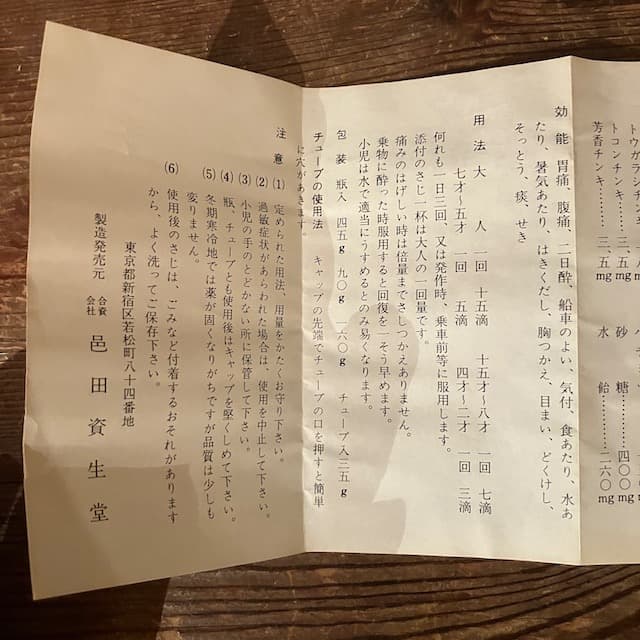 トウガラシチンキ
トコンチンキ……三・五mg
芳香チンキ……三・五mg
砂糖……四〇〇mg
水飴……二六〇mg
効能 胃痛、腹痛、二日酔、船車のよい、気付、食あたり、水あ
たり、暑気あたり、はきくだし、胸つかえ、目まい、どくけし、
そっとう、痰、せき
用法 大人 一回 十五滴 十五才〜八才 一回 七滴
七才〜五才 一回 五滴 四才〜二才 一回 三滴
何れも一日三回、又は発作時、乗車前等に服用します。
添付のさじ一杯は大人の一回量です。
痛みのはげしい時は倍量までさしつかえありません。
乗物に酔った時服用すると回復を一そう早めます。
小児は水で適当にうすめるとのみ易くなります。
包装 瓶入 四五g 九〇g 一六〇g チューブ入三五g
チューブの使用法 キャップの先端でチューブの口を押すと簡単
に穴があきます。
注意 (1) 定められた用法、用量をかたくお守り下さい。
(2) 過敏症状があらわれた場合は、使用を中止して下さい。
(3) 小児の手のとどかない所に保管して下さい。
(4) 瓶、チューブとも使用後はキャップを堅くしめて下さい。
(5) 冬期寒冷地では薬が固くなりがちですが品質は少しも
変りません。
(6) 使用後のさじは、ごみなど付着するおそれがあります
から、よく洗ってご保存下さい。
東京都新宿区若松町八十四番地
製造発売元 合資会社 邑田資生堂